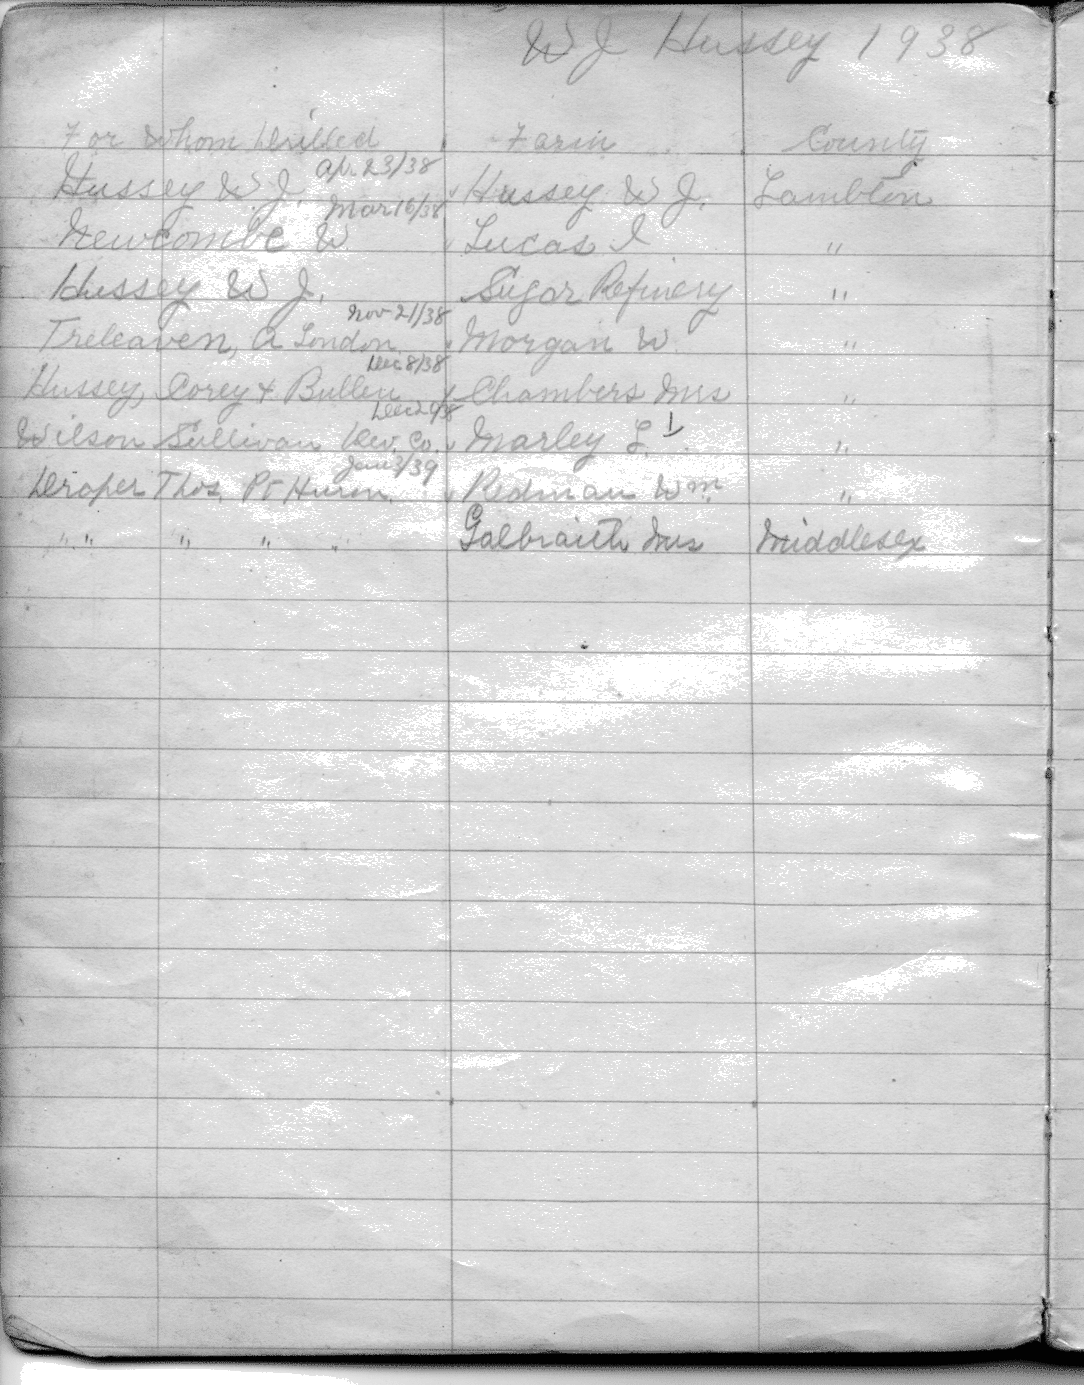 W J Hussey 1938
For Whom Drilled Farm County
Apr 23/38
Hussey W. J. Hussey W J. Lambton
Mar 16/38
Newcombe W Lucas I "
Hussey W J. Sugar Refinery "
Nov 21/38
Treleaven, A London Morgan W "
Dec 8/38
Hussey, Corey & Bullen Chambers Mrs "
Dec 29/38
Wilson Sullivan Dev. Co. Marley L. "
Jan 3/39
Draper Thos. Pt Huron. Redman Wm "
" " " " Galbraith Mrs Middlesex